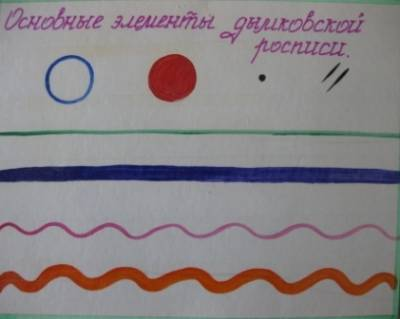 Основные элементы дымковской
росписи.